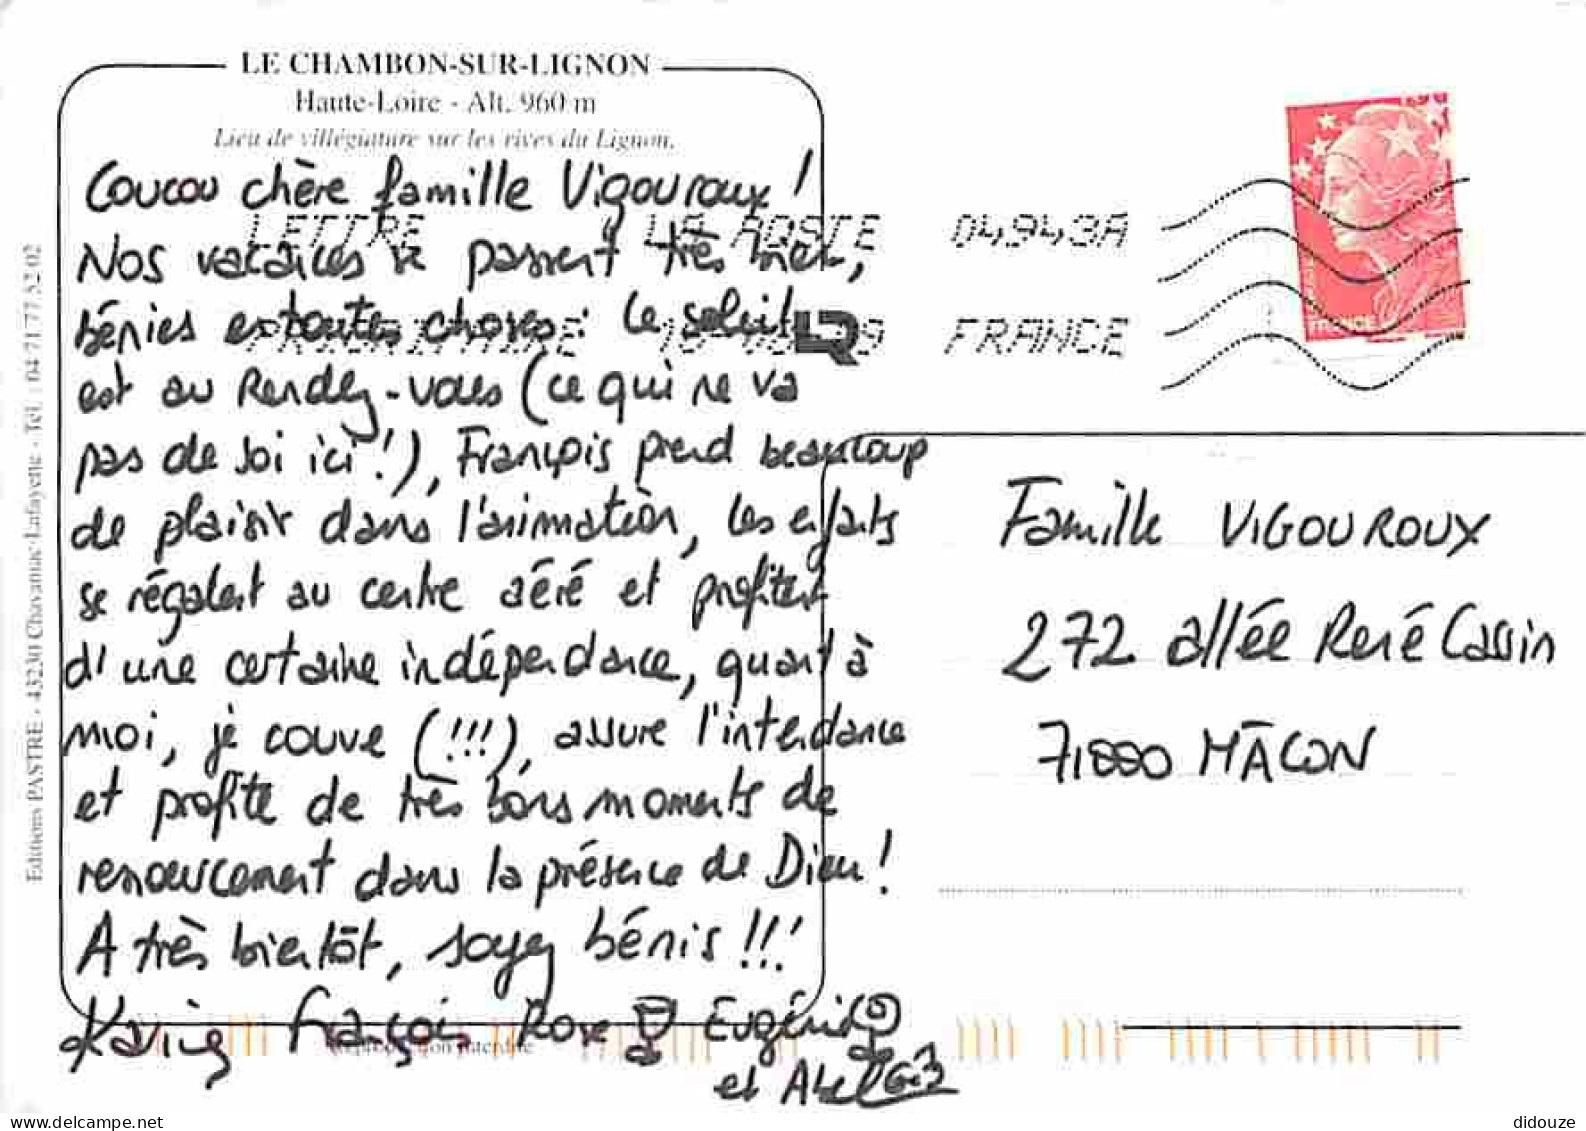 LE CHAMBON-SUR-LIGNON
Haute-Loire - Alt. 960 m
Lieu de villégiature sur les rives du Lignon.
Coucou chère famille Vigouroux !
LETTRE LA POSTE 04943A
Nos vacances se passent très bien,
bénies en toutes choses : le soleil
PRIORITAIRE FRANCE
est au Rendez-vous (ce qui ne va
pas de soi ici !), François prend beaucoup
de plaisir dans l'animation, les enfants
se régalent au centre aéré et profitent
d'une certaine indépendance, quant à
moi, je couve (!!!), assure l'intendance
et profite de très bons moments de
ressourcement dans la présence de Dieu !
A très bientôt, soyez bénis !!!
Karine François Rose Eugénie
et Abel
Reproduction interdite
Editions PASTRE - 43230 Chavaniac-Lafayette - Tél. : 04 71 77 52 02
FRANCE
Famille VIGOUROUX
272 allée René Cassin
71000 MÂCON
didouze